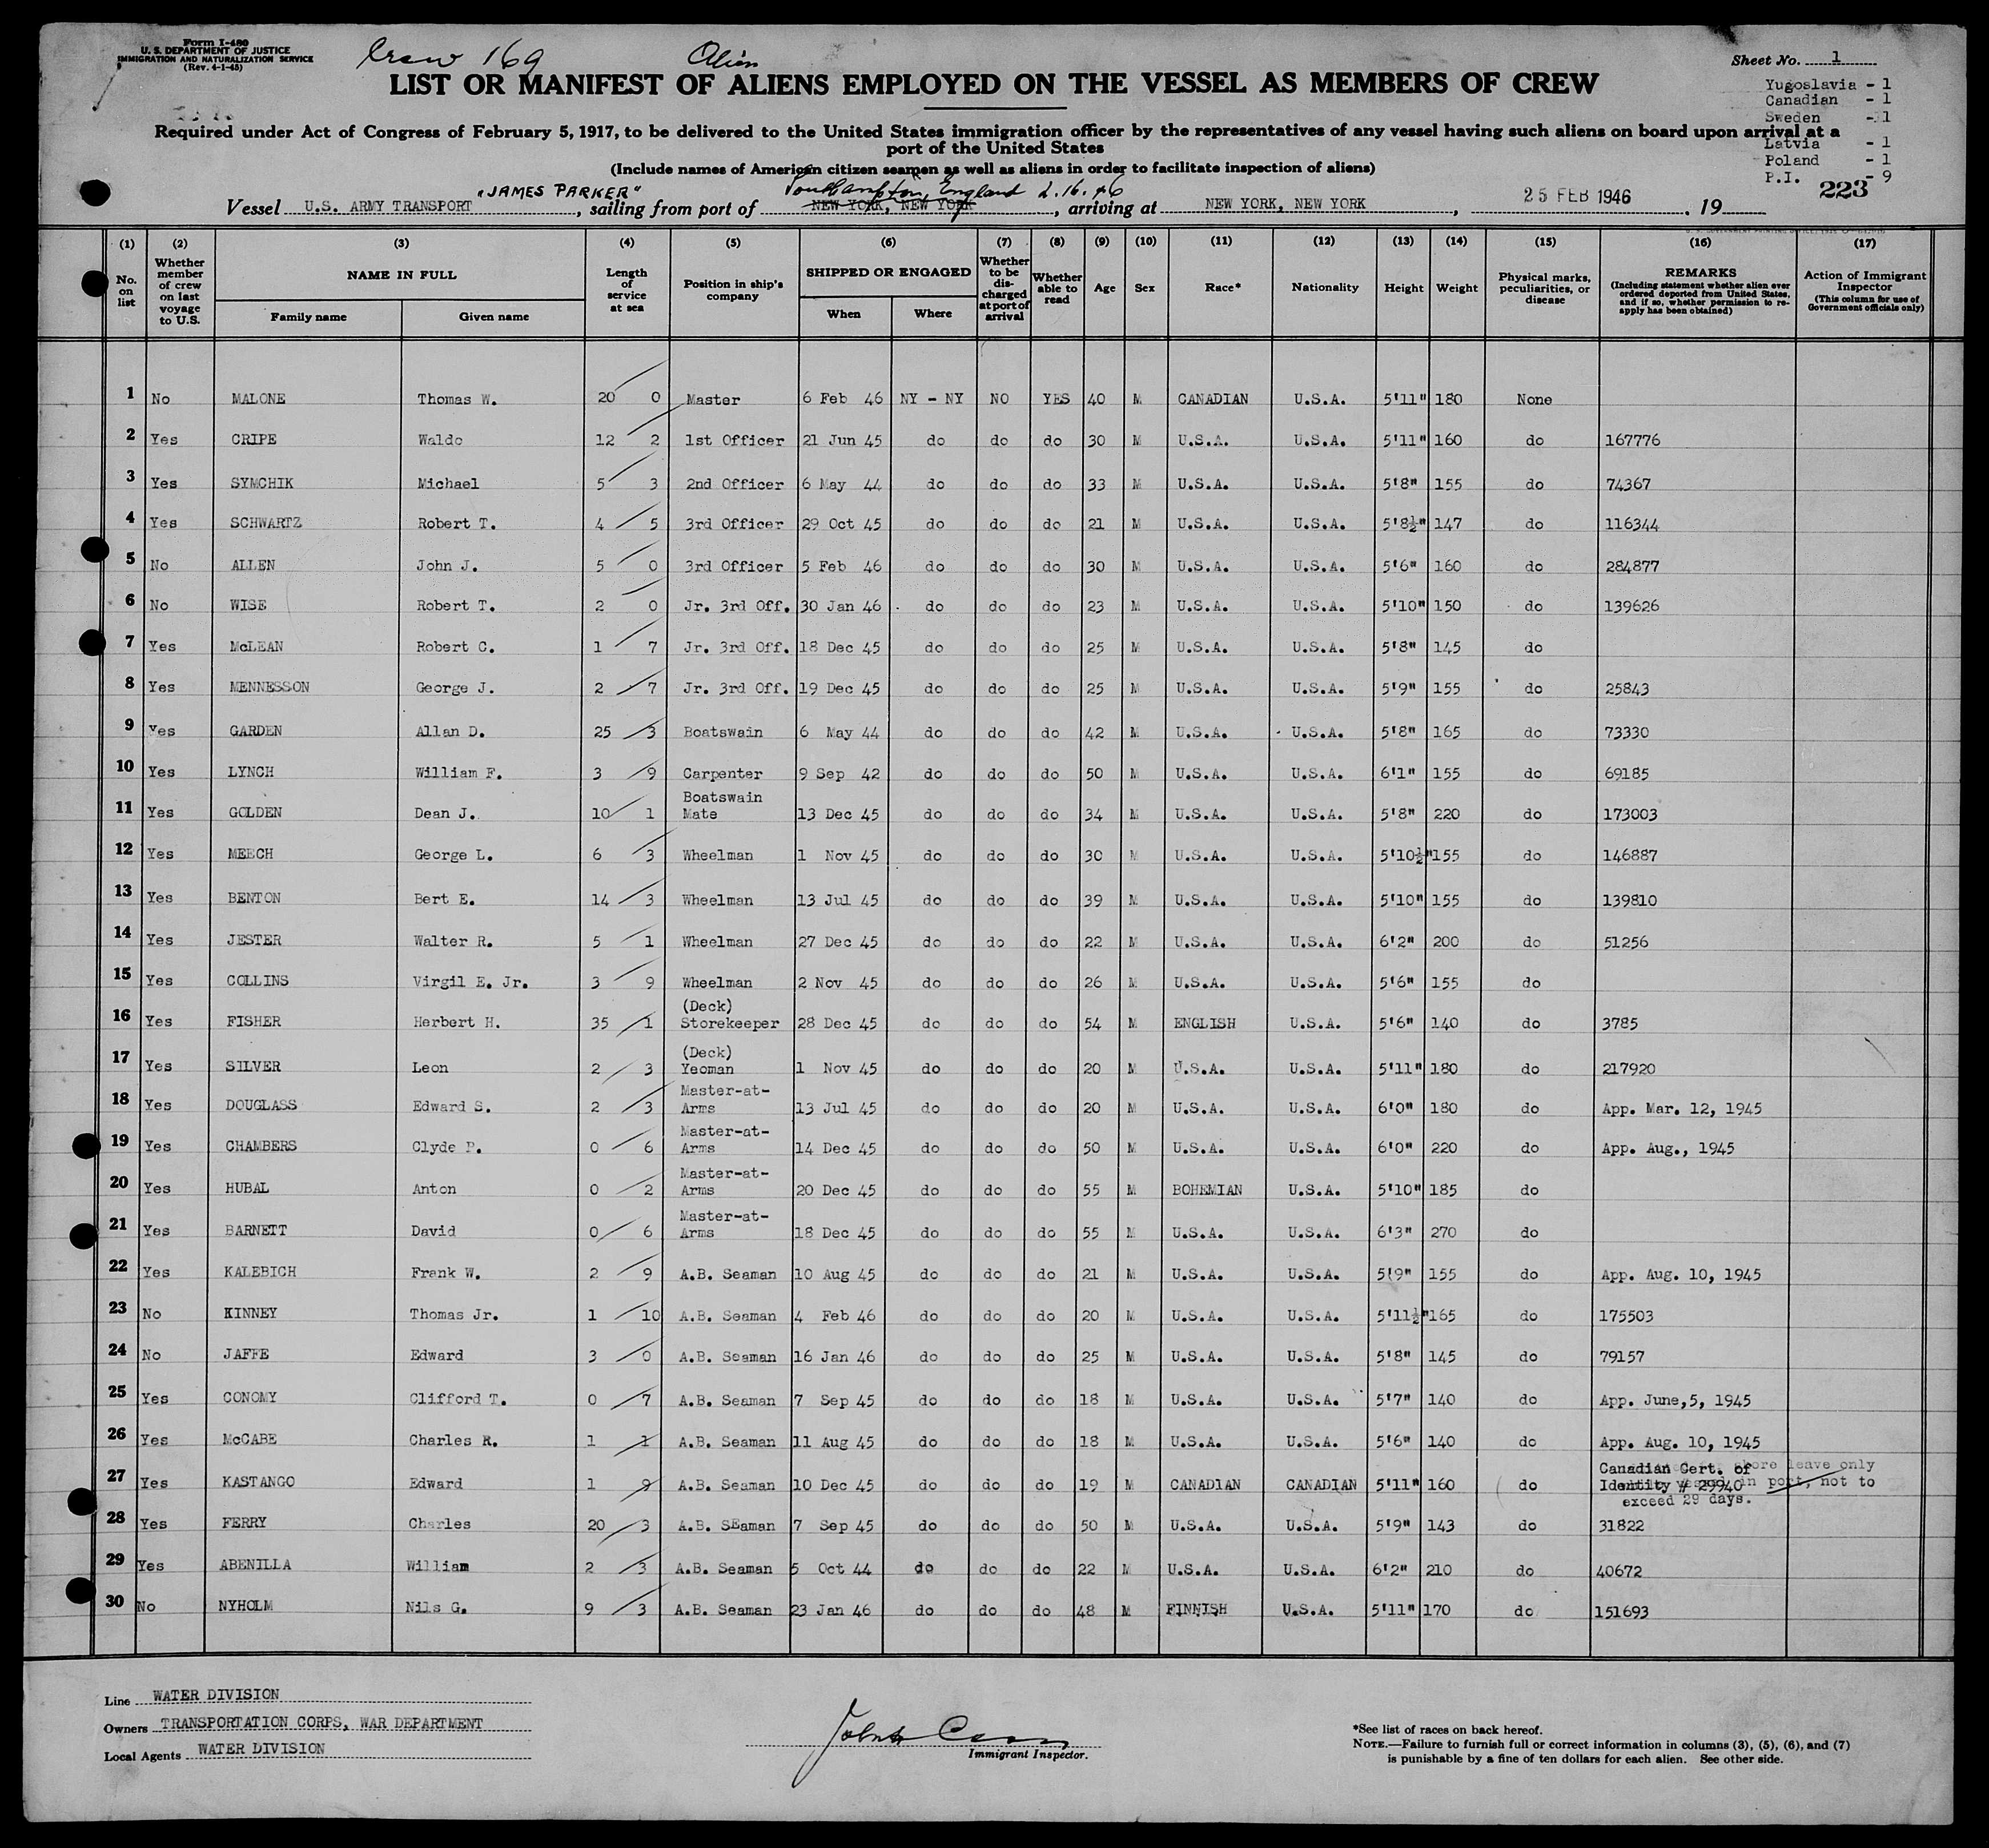 Form I-480
U. S. DEPARTMENT OF JUSTICE
IMMIGRATION AND NATURALIZATION SERVICE
(Rev. 4-1-45)
Crew 169
Alien
Sheet No. 1
LIST OR MANIFEST OF ALIENS EMPLOYED ON THE VESSEL AS MEMBERS OF CREW
Yugoslavia - 1
Canadian - 1
Sweden - 1
Latvia - 1
Poland - 1
P.I. - 9
Required under Act of Congress of February 5, 1917, to be delivered to the United States immigration officer by the representatives of any vessel having such aliens on board upon arrival at a
port of the United States
(Include names of American citizen seamen as well as aliens in order to facilitate inspection of aliens)
223
"JAMES PARKER" Southampton, England 2.16.46
Vessel U.S. ARMY TRANSPORT, sailing from port of NEW YORK, NEW YORK, arriving at NEW YORK, NEW YORK, 25 FEB 1946, 19
(1) No. on list (2) Whether member of crew on last voyage to U.S. (3) NAME IN FULL Family name Given name (4) Length of service at sea (5) Position in ship's company (6) SHIPPED OR ENGAGED When Where (7) Whether to be discharged at port of arrival (8) Whether able to read (9) Age (10) Sex (11) Race* (12) Nationality (13) Height (14) Weight (15) Physical marks, peculiarities, or disease (16) REMARKS (Including statement whether alien ever ordered deported from United States, and if so, whether permission to re-apply has been obtained) (17) Action of Immigrant Inspector (This column for use of Government officials only)
1 No MALONE Thomas W. 20 0 Master 6 Feb 46 NY - NY NO YES 40 M CANADIAN U.S.A. 5'11" 180 None
2 Yes CRIPE Waldo 12 2 1st Officer 21 Jun 45 do do do 30 M U.S.A. U.S.A. 5'11" 160 do 167776
3 Yes SYMCHIK Michael 5 3 2nd Officer 6 May 44 do do do 33 M U.S.A. U.S.A. 5'8" 155 do 74367
4 Yes SCHWARTZ Robert T. 4 5 3rd Officer 29 Oct 45 do do do 21 M U.S.A. U.S.A. 5'8½" 147 do 116344
5 No ALLEN John J. 5 0 3rd Officer 5 Feb 46 do do do 30 M U.S.A. U.S.A. 5'6" 160 do 284877
6 No WISE Robert T. 2 0 Jr. 3rd Off. 30 Jan 46 do do do 23 M U.S.A. U.S.A. 5'10" 150 do 139626
7 Yes McLEAN Robert C. 1 7 Jr. 3rd Off. 18 Dec 45 do do do 25 M U.S.A. U.S.A. 5'8" 145 do
8 Yes MENNESSON George J. 2 7 Jr. 3rd Off. 19 Dec 45 do do do 25 M U.S.A. U.S.A. 5'9" 155 do 25843
9 Yes GARDEN Allan D. 25 3 Boatswain 6 May 44 do do do 42 M U.S.A. U.S.A. 5'8" 165 do 73330
10 Yes LYNCH William F. 3 9 Carpenter 9 Sep 42 do do do 50 M U.S.A. U.S.A. 6'1" 155 do 69185
11 Yes GOLDEN Dean J. 10 1 Boatswain Mate 13 Dec 45 do do do 34 M U.S.A. U.S.A. 5'8" 220 do 173003
12 Yes MEECH George L. 6 3 Wheelman 1 Nov 45 do do do 30 M U.S.A. U.S.A. 5'10½" 155 do 146887
13 Yes BENTON Bert E. 14 3 Wheelman 13 Jul 45 do do do 39 M U.S.A. U.S.A. 5'10" 155 do 139810
14 Yes JESTER Walter R. 5 1 Wheelman 27 Dec 45 do do do 22 M U.S.A. U.S.A. 6'2" 200 do 51256
15 Yes COLLINS Virgil E. Jr. 3 9 Wheelman 2 Nov 45 do do do 26 M U.S.A. U.S.A. 5'6" 155 do
16 Yes FISHER Herbert H. 35 1 (Deck) Storekeeper 28 Dec 45 do do do 54 M ENGLISH U.S.A. 5'6" 140 do 3785
17 Yes SILVER Leon 2 3 (Deck) Yeoman 1 Nov 45 do do do 20 M U.S.A. U.S.A. 5'11" 180 do 217920
18 Yes DOUGLASS Edward S. 2 3 Master-at-Arms 13 Jul 45 do do do 20 M U.S.A. U.S.A. 6'0" 180 do App. Mar. 12, 1945
19 Yes CHAMBERS Clyde P. 0 6 Master-at-Arms 14 Dec 45 do do do 50 M U.S.A. U.S.A. 6'0" 220 do App. Aug., 1945
20 Yes HUBAL Anton 0 2 Master-at-Arms 20 Dec 45 do do do 55 M BOHEMIAN U.S.A. 5'10" 185 do
21 Yes BARNETT David 0 6 Master-at-Arms 18 Dec 45 do do do 55 M U.S.A. U.S.A. 6'3" 270 do
22 Yes KALEBICH Frank W. 2 9 A.B. Seaman 10 Aug 45 do do do 21 M U.S.A. U.S.A. 5'9" 155 do App. Aug. 10, 1945
23 No KINNEY Thomas Jr. 1 10 A.B. Seaman 4 Feb 46 do do do 20 M U.S.A. U.S.A. 5'11½" 165 do 175503
24 No JAFFE Edward 3 0 A.B. Seaman 16 Jan 46 do do do 25 M U.S.A. U.S.A. 5'8" 145 do 79157
25 Yes CONOMY Clifford T. 0 7 A.B. Seaman 7 Sep 45 do do do 18 M U.S.A. U.S.A. 5'7" 140 do App. June,5, 1945
26 Yes McCABE Charles R. 1 1 A.B. Seaman 11 Aug 45 do do do 18 M U.S.A. U.S.A. 5'6" 140 do App. Aug. 10, 1945
27 Yes KASTANGO Edward 1 9 A.B. Seaman 10 Dec 45 do do do 19 M CANADIAN CANADIAN 5'11" 160 do Canadian Cert. of Identity # 29940 shore leave only in port, not to exceed 29 days.
28 Yes FERRY Charles 20 3 A.B. SEaman 7 Sep 45 do do do 50 M U.S.A. U.S.A. 5'9" 143 do 31822
29 Yes ABENILLA William 2 3 A.B. Seaman 5 Oct 44 do do do 22 M U.S.A. U.S.A. 6'2" 210 do 40672
30 No NYHOLM Nils G. 9 3 A.B. Seaman 23 Jan 46 do do do 48 M FINNISH U.S.A. 5'11" 170 do 151693
Line WATER DIVISION
Owners TRANSPORTATION CORPS, WAR DEPARTMENT
Local Agents WATER DIVISION
Immigrant Inspector.
*See list of races on back hereof.
NOTE.—Failure to furnish full or correct information in columns (3), (5), (6), and (7)
is punishable by a fine of ten dollars for each alien. See other side.